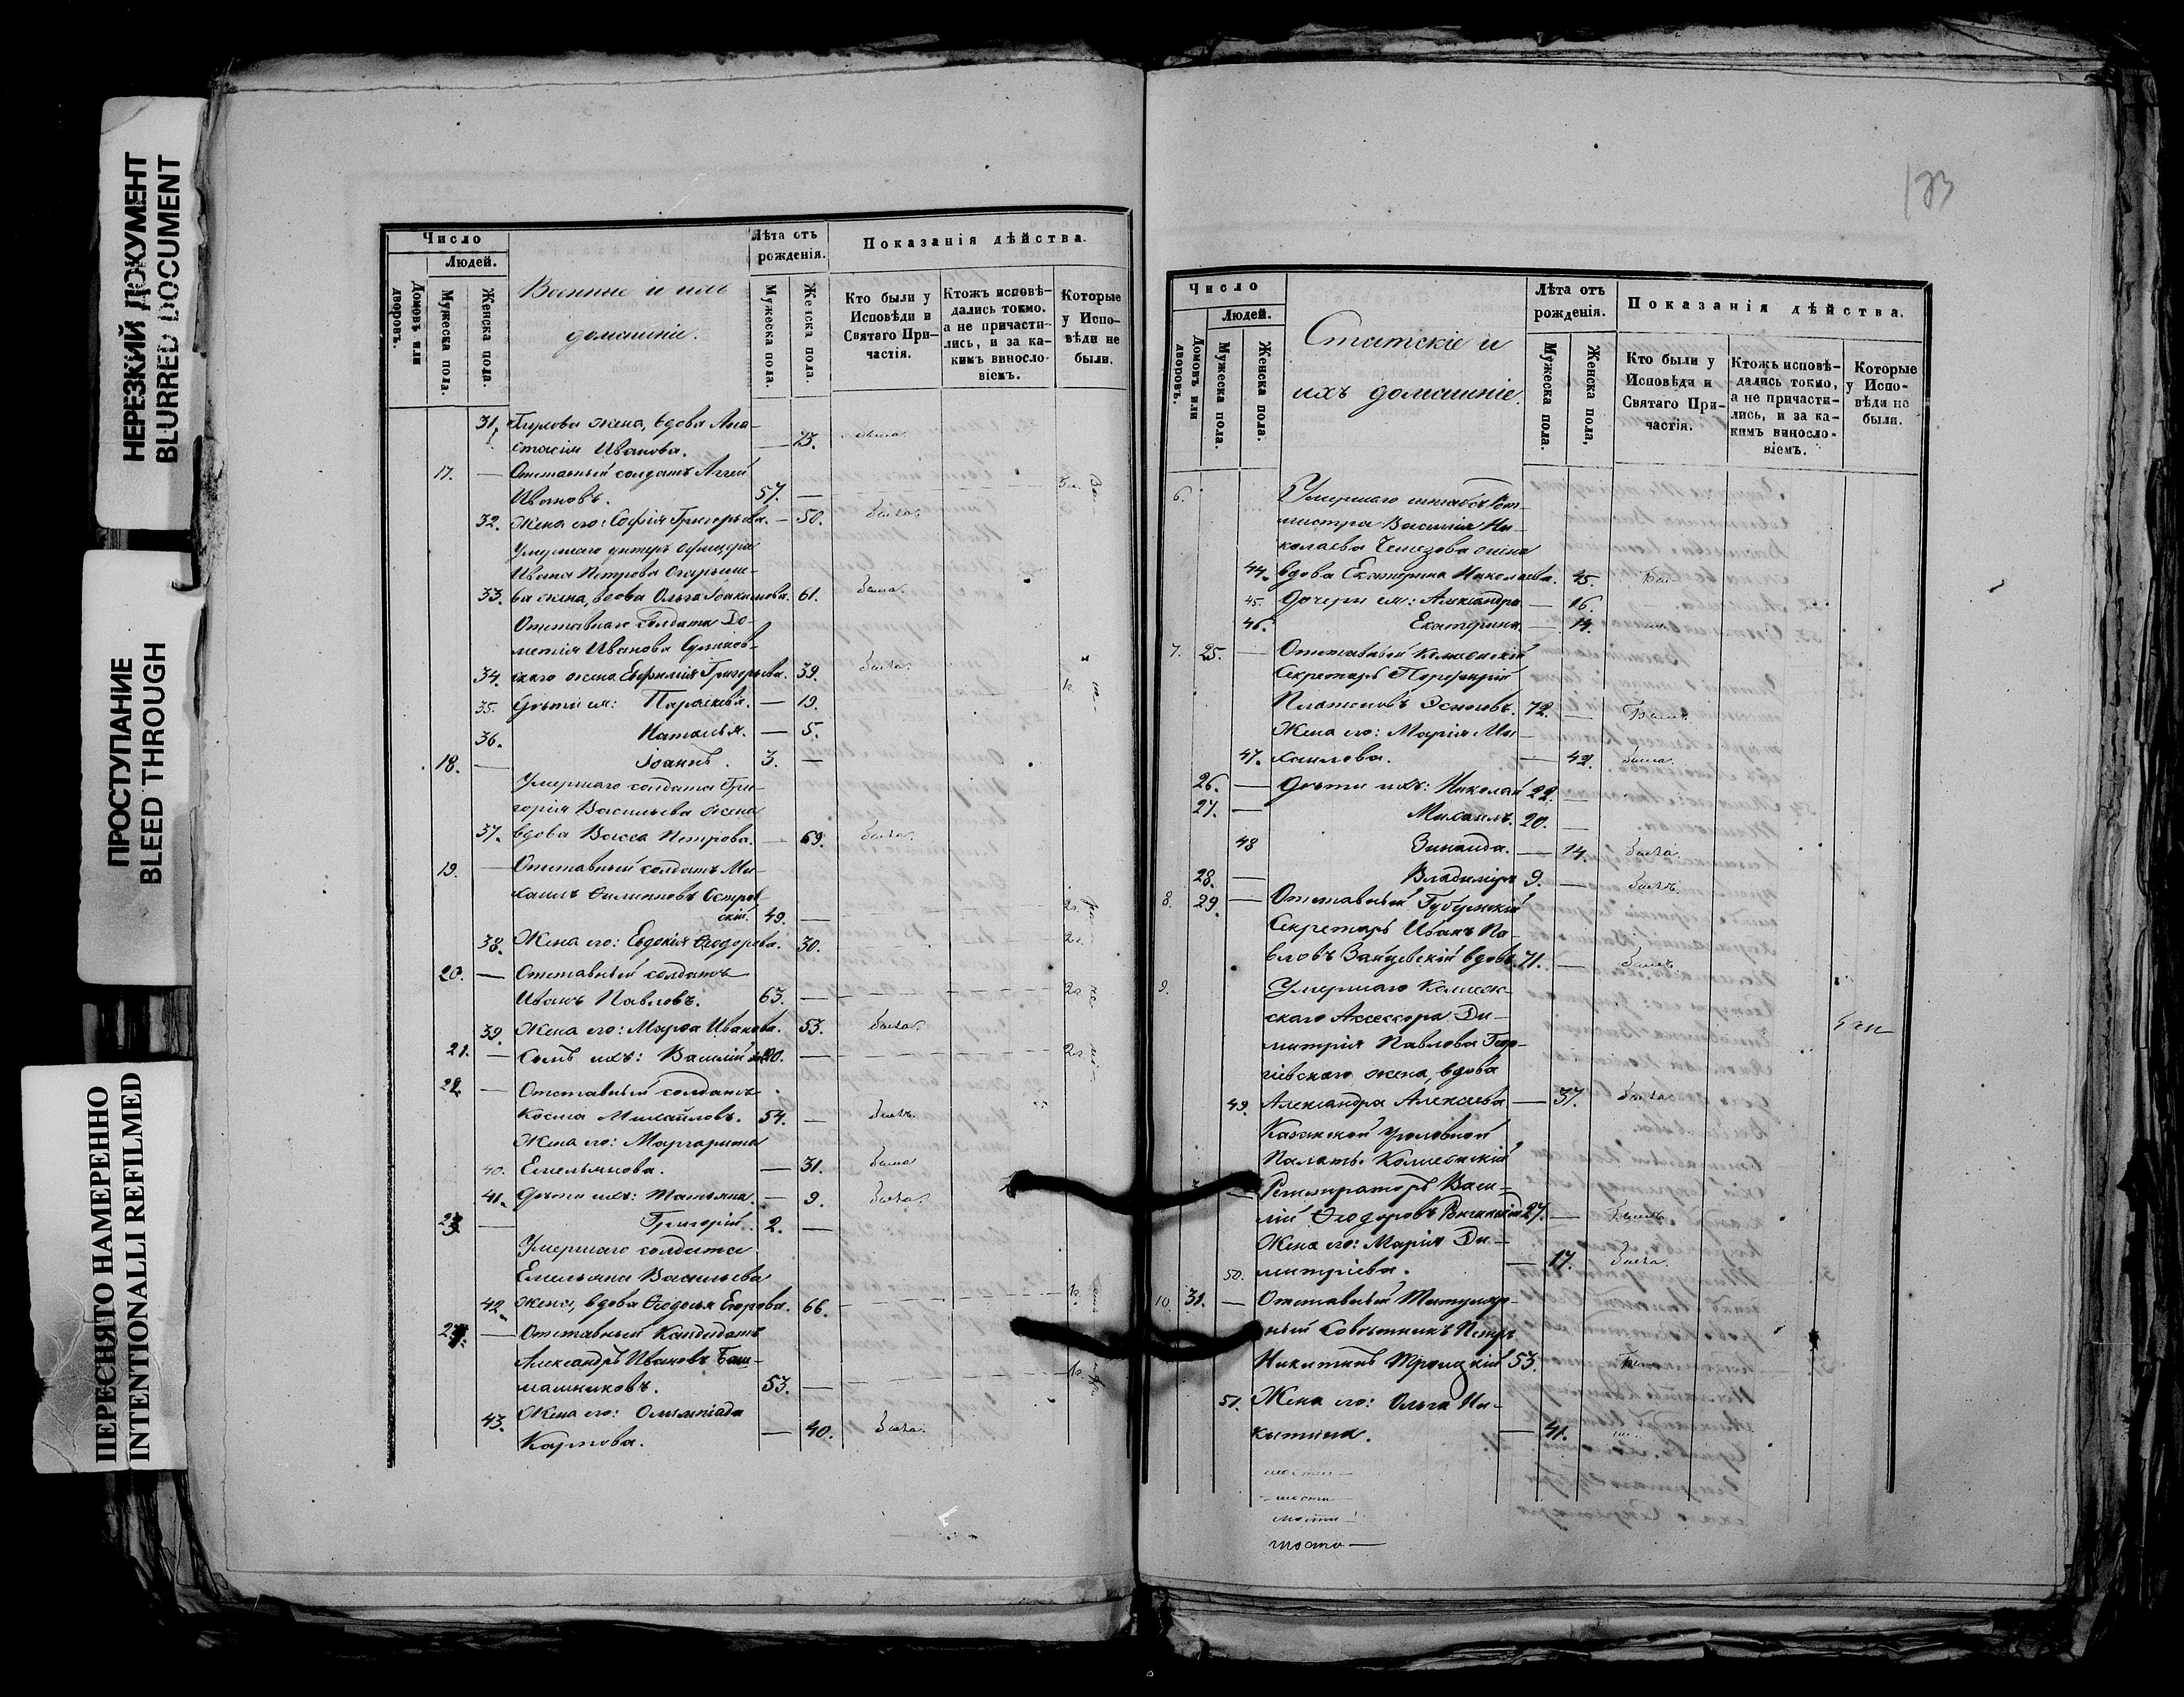 НЕРЕЗКИЙ ДОКУМЕНТ
BLURRED DOCUMENT
ПРОСТУПАНИЕ
BLEED THROUGH
ПЕРЕСНЯТО НАМЕРЕННО
INTENTIONALLI REFILMED
Число
Людей.
Домовъ или дворовъ.
Мужеска пола.
Женска пола.
Военные и ихъ
домашніе.
Лѣта отъ
рожденія.
Мужеска пола.
Женска пола.
Показанія дѣйства.
Кто были у
Исповѣди и
Святаго При-
частія.
Ктожъ исповѣ-
дались токмо,
а не причасти-
лись, и за ка-
кимъ винosло-
віемъ.
Которые
у Испо-
вѣди не
были.
31. жена, вдова Ана-
стасія Иванова. — 73. была
17. — Отставный солдатъ Аггей
Ивановъ. 57. —
32. Жена его: Софія Григорьева. — 50. была.
Умершаго унтеръ офицера
Ивана Петрова
33. ва жена, вдова Ольга Іоакимова. 61. была.
Отставнаго Солдата До-
метія Иванова
34. скаго жена Евфимія Григорьева. 39. была.
35. Дѣти ея: Параскева. — 19.
36. Наталья. — 5.
18. — Іоаннъ. 3. —
Умершаго солдата Гри-
горія Васильева жена
37. вдова Васса Петрова. — 69. была.
19. — Отставный солдатъ Ми-
хаилъ Филипповъ Остров
скій. 49. —
38. Жена его: Евдокія Ѳеодорова. 30.
20. — Отставный солдатъ
Иванъ Павловъ. 63. —
39. Жена его: Марѳа Иванова. 53. была.
21. — Сынъ ихъ: Василій 20. —
22. — Отставный солдатъ
Косма Михайловъ. 54. — былъ.
Жена его: Маргарита
40. Емельянова. — 31. была
41. Дѣти ихъ: Татьяна. — 9. была.
23. — Григорій. 2. —
Умершаго солдата
Емельяна Васильева
42. жена, вдова Ѳеодосья Егорова. 66.
24. — Отставный Кандидатъ
Александръ Ивановъ Баш-
машниковъ. 53. —
43. Жена его: Олимпіада
Карпова. — 40. была.
133
Число
Людей.
Домовъ или дворовъ.
Мужеска пола.
Женска пола.
Статскіе и
ихъ домашніе.
Лѣта отъ
рожденія.
Мужеска пола.
Женска пола,
Показанія дѣйства.
Кто были у
Исповѣди и
Святаго При-
частія.
Ктожъ исповѣ-
дались токмо,
а не причасти-
лись, и за ка-
кимъ винosло-
віемъ.
Которые
у Испо-
вѣди не
были.
6. Умершаго штабсъ Рот-
мистра Василія Ни-
колаева жена
44. вдова Екатерина Николаева. 45.
45. Дочери ея: Александра. — 16.
46. Екатерина. — 14.
7. 25. — Отставный Коллежскій
Секретарь Порфирій
Платоновъ Есиповъ. 72. — Былъ.
Жена его: Марія Ми-
47. хаилова. — 42. была.
26. — Дѣти ихъ: Николай 22. —
27. — Михаилъ. 20. —
48 Зинаида. — 14. была.
28. — Владиміръ 9. — былъ.
8. 29. — Отставный Губернскій
Секретарь Иванъ Па-
вловъ вдовъ. 71. — былъ.
9. Умершаго Коллеж-
скаго Ассессора Ди-
митрія Павлова Геор-
гіевскаго жена, вдова
49. Александра Алексеева — 37. была.
Казанской Уголовной
Палаты Коллежскій
— Регистраторъ Васи-
лій Ѳеодоровъ 27. — Былъ.
Жена его: Марія Ди-
50. митріева. — 17. была.
10. 31. — Отставный Титуляр-
ный Совѣтникъ Петръ
Никитинъ Троицкій 53.
51. Жена его: Ольга Ни-
китина. — 41.